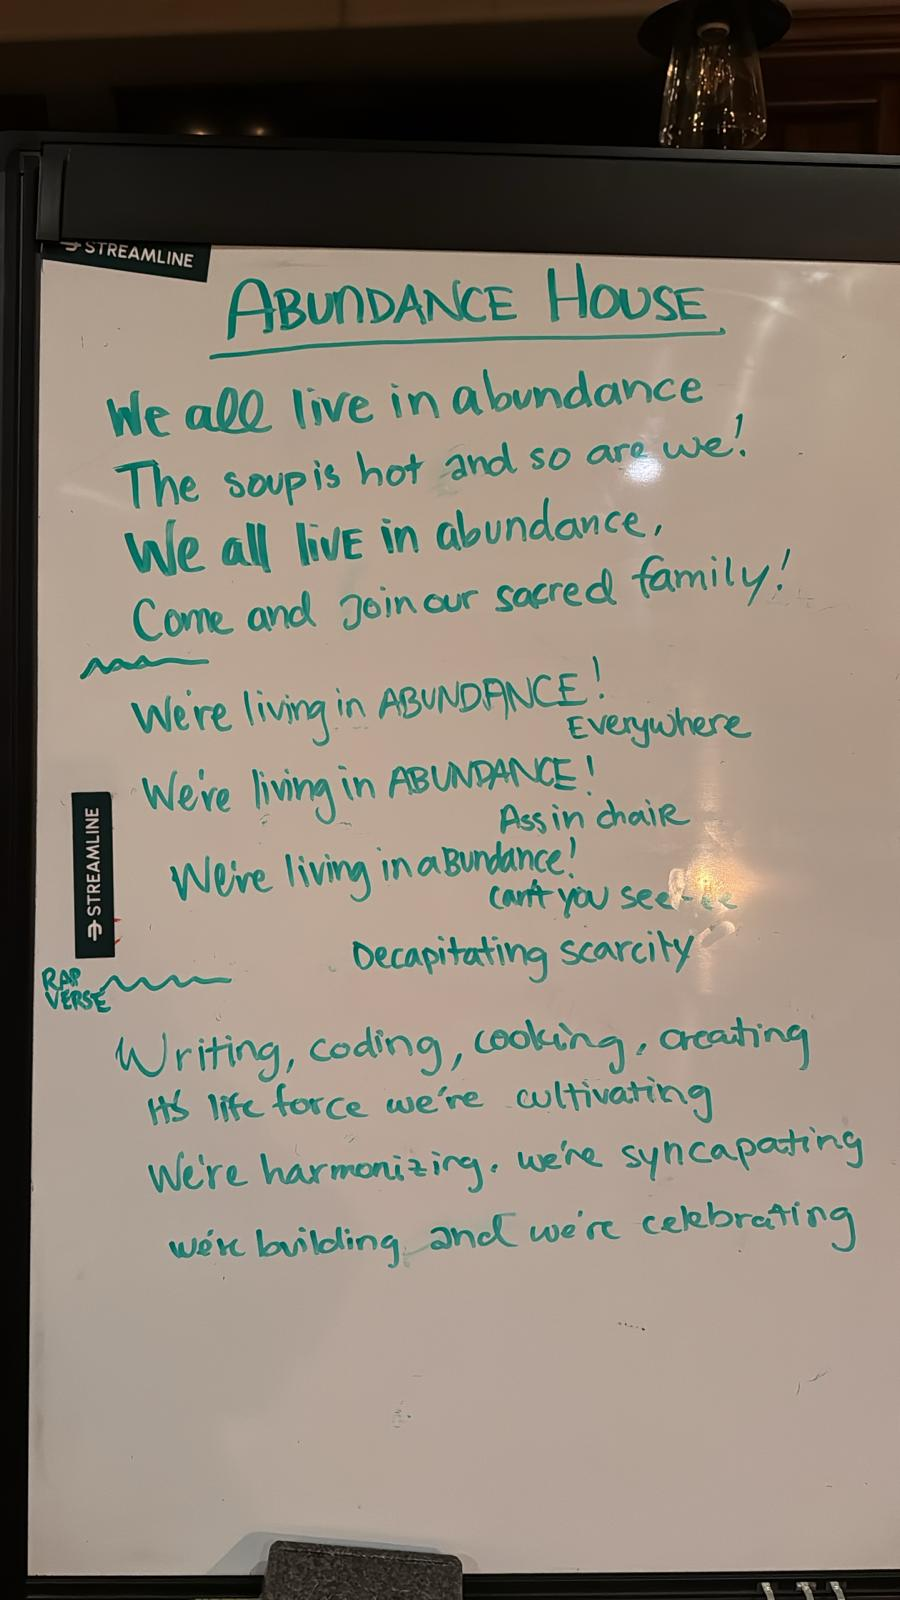 STREAMLINE
ABUNDANCE HOUSE
We all live in abundance
The soup is hot and so are we!
We all livE in abundance,
Come and Join our sacred family!
We're living in ABUNDANCE!
Everywhere
We're living in ABUNDANCE!
Ass in chaiR
We're living in aBundance!
Can't you see
Decapitating scarcity
STREAMLINE
RAP
VERSE
Writing, coding, cooking, creating
It's life force we're cultivating
We're harmonizing. we're syncapating
we're building and we're celebrating